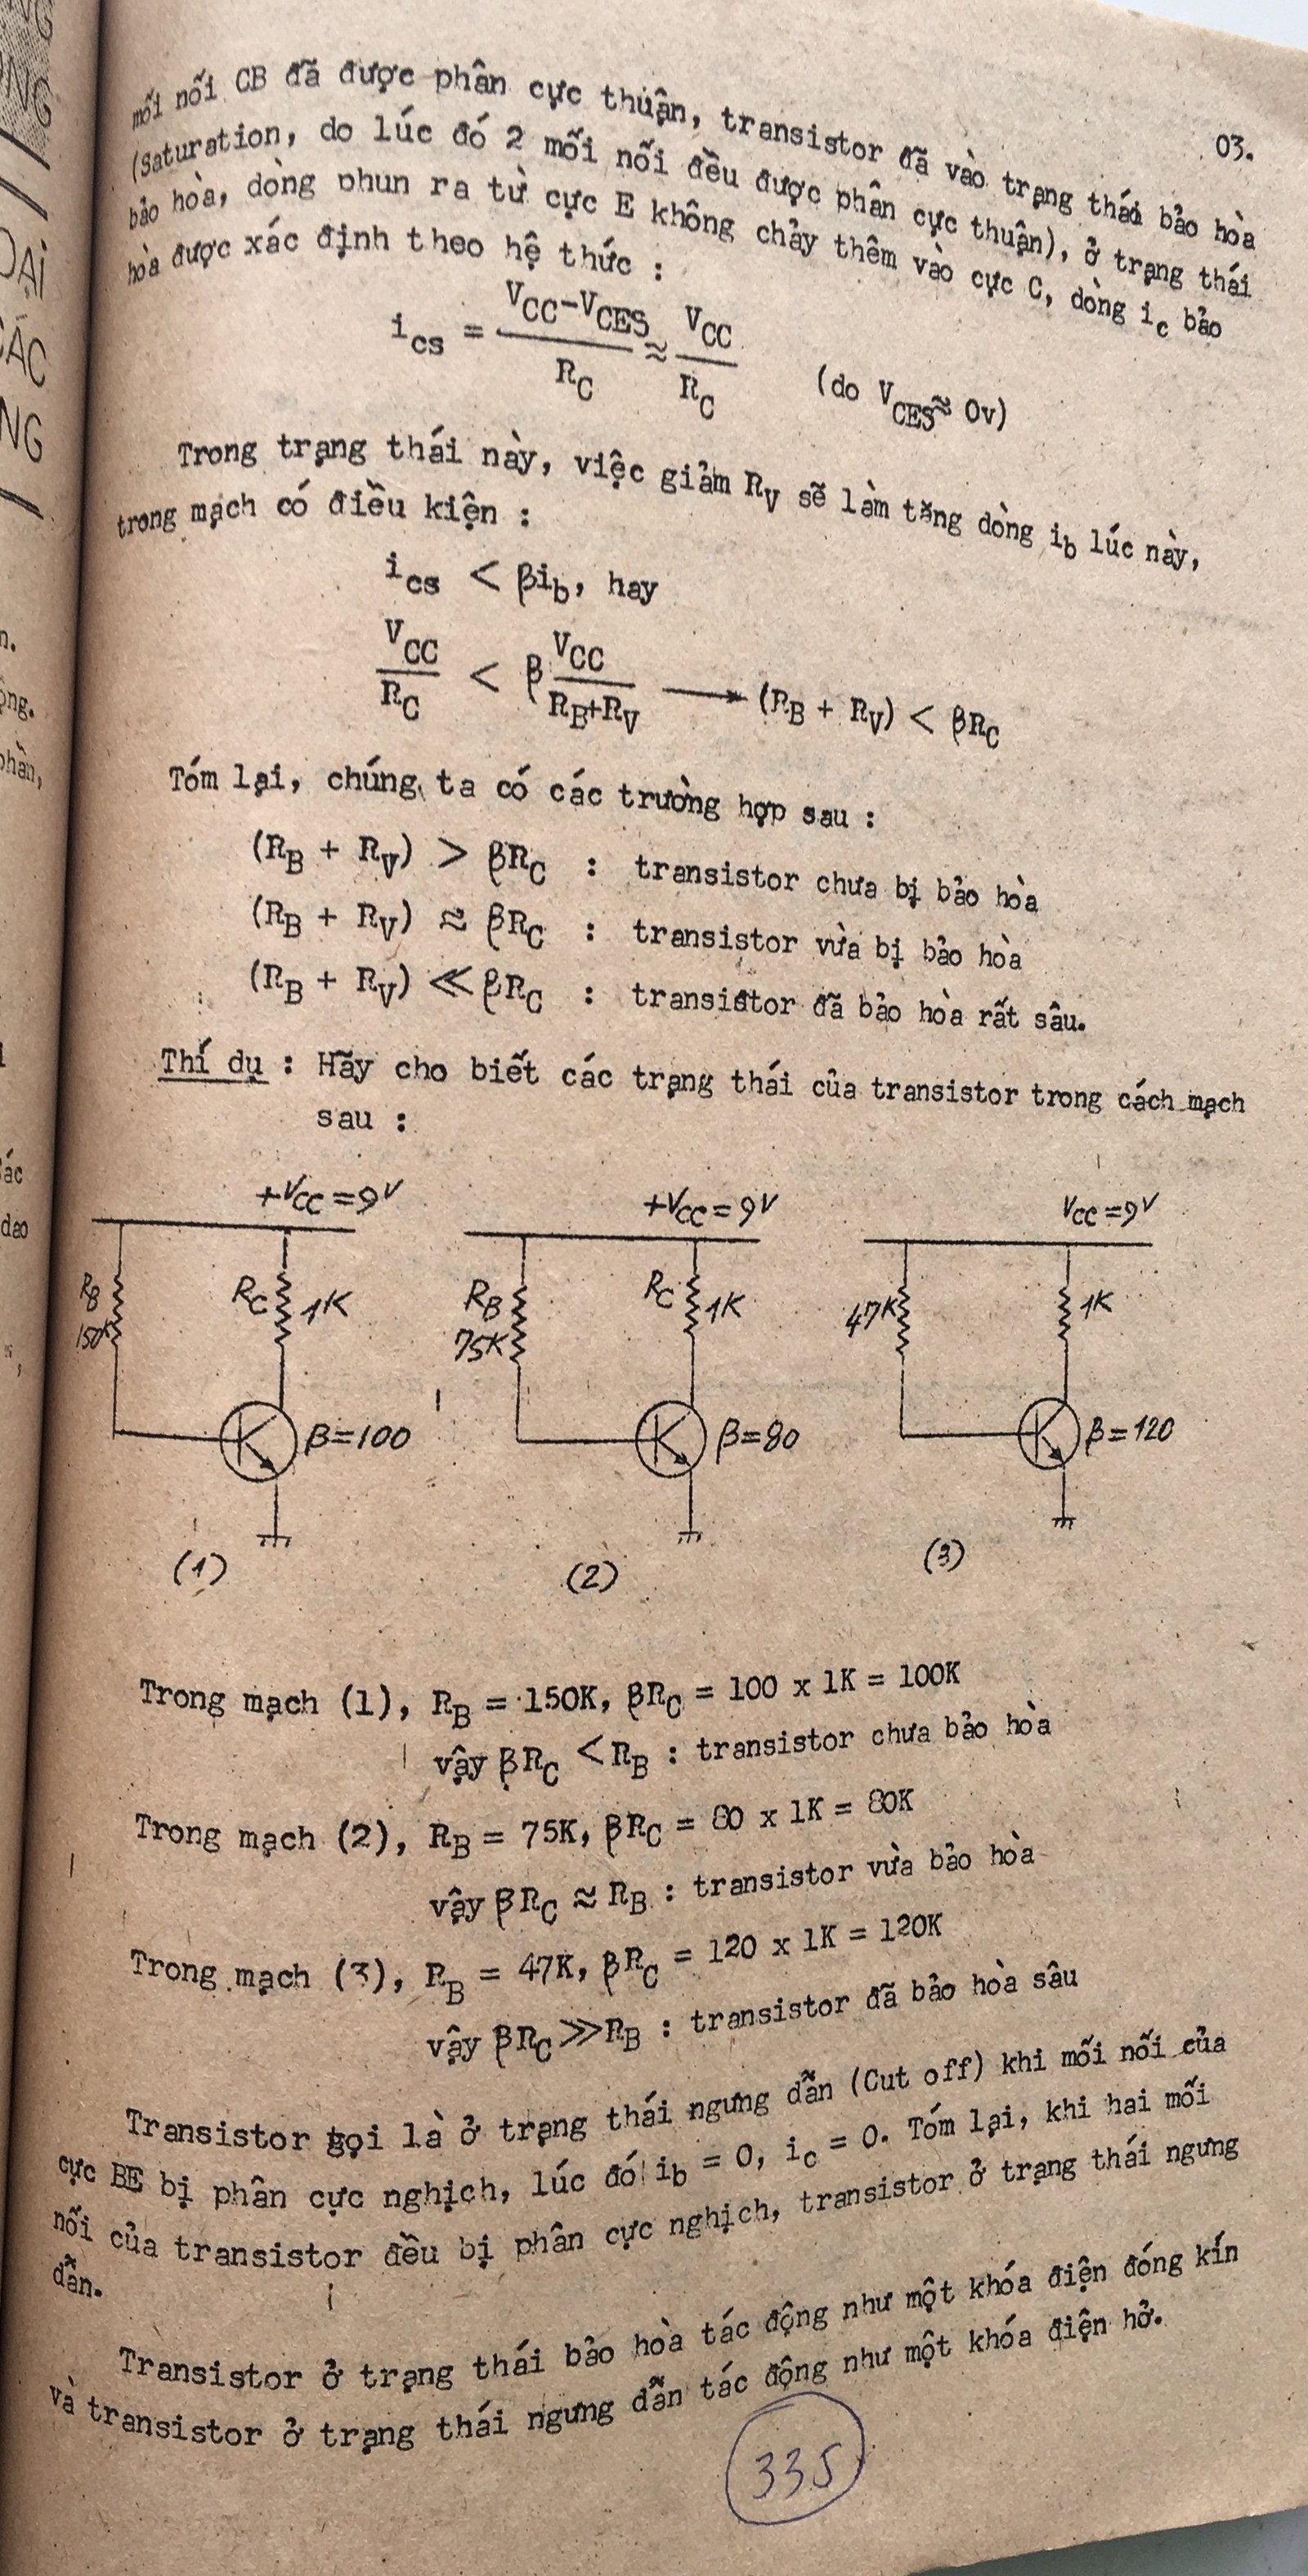 03.
mối nối CB đã được phân cực thuận, transistor đã vào trạng thái bảo hòa
(saturation, do lúc đó 2 mối nối đều được phân cực thuận), ở trạng thái
bảo hòa, dòng phun ra từ cực E không chảy thêm vào cực C, dòng ic bảo
hòa được xác định theo hệ thức :
ics = (VCC-VCES)/RC ≈ VCC/RC (do VCES ≈ 0v)
Trong trạng thái này, việc giảm RV sẽ làm tăng dòng ib lúc này,
trong mạch có điều kiện :
ics < βib, hay
VCC/RC < β VCC/(RB+RV) ⟶ (RB + RV) < βRC
Tóm lại, chúng ta có các trường hợp sau :
(RB + RV) > βRC : transistor chưa bị bảo hòa
(RB + RV) ≈ βRC : transistor vừa bị bảo hòa
(RB + RV) ≪ βRC : transistor đã bảo hòa rất sâu.
Thí dụ : Hãy cho biết các trạng thái của transistor trong cách mạch
sau :
+VCC=9V
RB
150K
RC
1K
β=100
(1)
+VCC=9V
RB
75K
RC
1K
β=80
(2)
VCC=9V
47K
1K
β=120
(3)
Trong mạch (1), RB = 150K, βRC = 100 x 1K = 100K
vậy βRC < RB : transistor chưa bảo hòa
Trong mạch (2), RB = 75K, βRC = 80 x 1K = 80K
vậy βRC ≈ RB : transistor vừa bảo hòa
Trong mạch (3), RB = 47K, βRC = 120 x 1K = 120K
vậy βRC ≫ RB : transistor đã bảo hòa sâu
Transistor gọi là ở trạng thái ngưng dẫn (Cut off) khi mối nối của
cực BE bị phân cực nghịch, lúc đó ib = 0, ic = 0. Tóm lại, khi hai mối
nối của transistor đều bị phân cực nghịch, transistor ở trạng thái ngưng
dẫn.
Transistor ở trạng thái bảo hòa tác động như một khóa điện đóng kín
và transistor ở trạng thái ngưng dẫn tác động như một khóa điện hở.
335